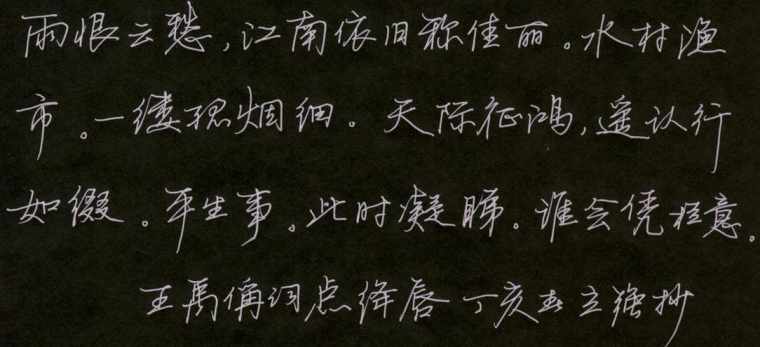 雨恨云愁,江南依旧称佳丽。水村渔
市。一缕孤烟细。天际征鸿,遥认行
如缀。平生事。此时凝睇。谁会凭栏意。
王禹偁词点绛唇 丁亥 立强抄